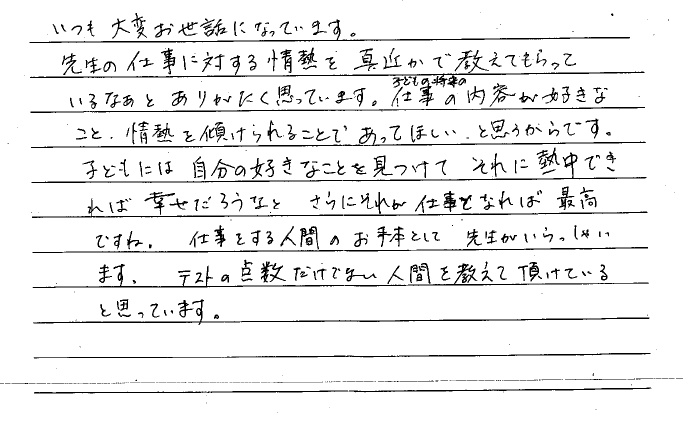 いつも大変お世話になっています。
先生の仕事に対する情熱を真近かで教えてもらって
いるなぁとありがたく思っています。子どもの将来の仕事の内容が好きな
こと、情熱を傾けられることであってほしい、と思うからです。
子どもには自分の好きなことを見つけてそれに熱中でき
れば幸せだろうなと さらにそれが仕事となれば最高
ですね。 仕事をする人間のお手本として先生がいらっしゃい
ます。 テストの点数だけでない人間を教えて頂けている
と思っています。